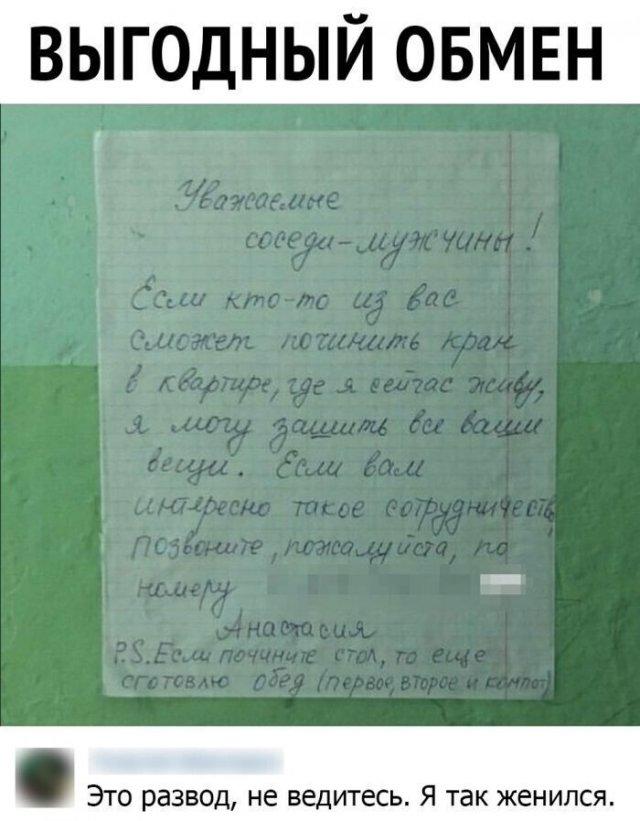 ВЫГОДНЫЙ ОБМЕН
Уважаемые
соседи-мужчины!
Если кто-то из вас
сможет починить кран
в квартире, где я сейчас живу,
я могу зашить все ваши
вещи. Если вам
интересно такое сотрудничеств
позвоните, пожалуйста, по
номеру
Анастасия
P.S. Если почините стол, то еще
сготовлю обед (первое, второе и компот)
Это развод, не ведитесь. Я так женился.